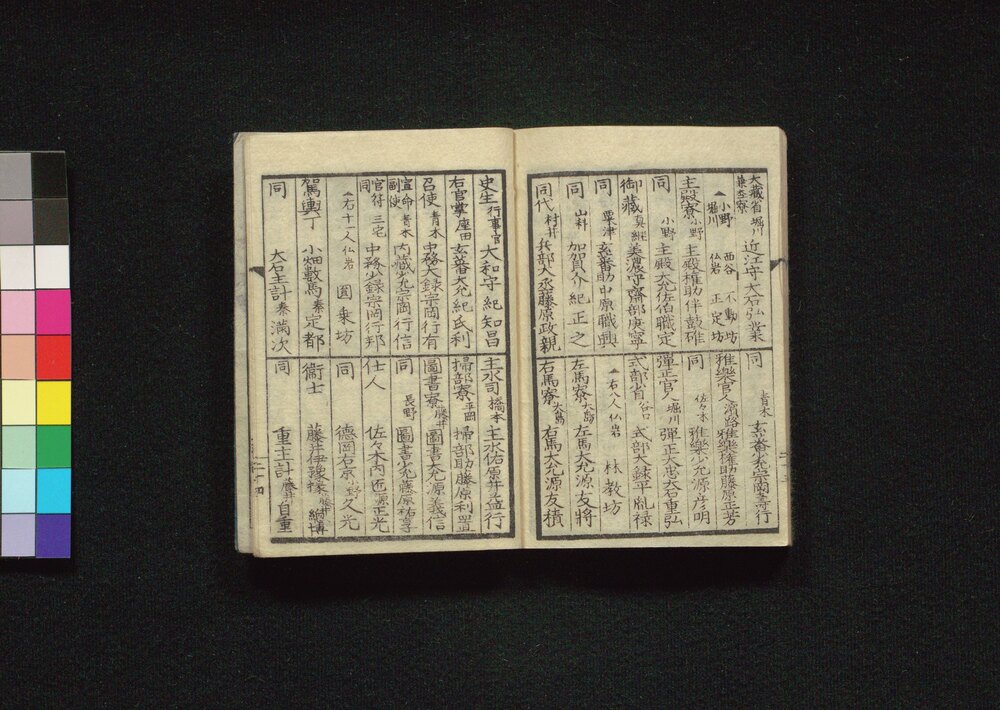 大蔵省 堀川 近江守大石弘業
兼木工寮
小野 西谷 不動坊
堀川 仏岩 正定坊
主殿寮 小野 主殿権助伴鼓確
同 小野 主殿大允佐伯職定
御蔵 真継 美濃守齋部康寧
同 粟津 玄蕃助中原職興
同 山科 加賀介紀正之
同代 村井 兵部大丞藤原政親
同 青木 玄蕃少允宗岡行
雅楽官人 淡路 雅楽権助藤原正芳
同 佐々木 雅楽少允源彦明
弾正官人 堀川 弾正大忠大石重弘
式部省 谷口 式部大録平胤禄
右八人仏岩 林教坊
左馬寮 大島 左馬大允源友将
右馬寮 大島 右馬大允源友積
史生 行事官 大和守紀知昌
右官掌 座田 玄蕃大允紀氏利
召使 青木 中務大録宗岡行有
宣命 青木 内蔵少允宗岡行信
副使
官符 三宅 中務少録宗岡行邦
同
右十一人仏岩 圓乗坊
駕輿丁 小畑数馬 秦定都
同 大石主計 秦満次
主水司 橋本 主水佑原井益行
掃部寮 平岡 掃部助藤原利置
圖書寮 藤井 圖書大允源義信
同 長野 圖書少允藤原祐享
仕人 佐々木内匠 源正光
同 徳岡右京 小野久光
衛士 藤井伊豫掾 藤井維博
同 重主計 藤井自重